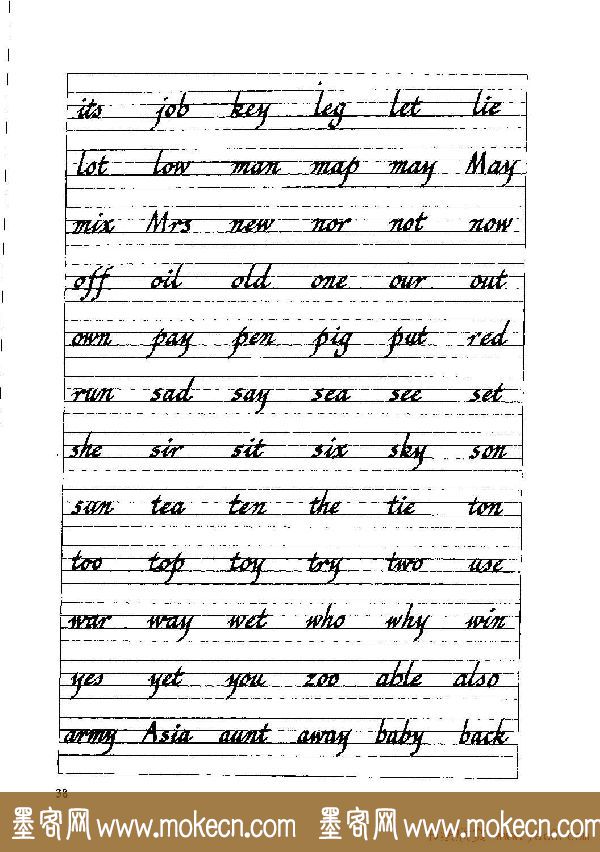 its job key leg let lie
lot low man map may May
mix Mrs new nor not now
off oil old one our out
own pay pen pig put red
run sad say sea see set
she sir sit six sky son
sun tea ten the tie ton
too top toy try two use
war way wet who why win
yes yet you zoo able also
army Asia aunt away baby back
38
墨客网 www.mokecn.com 墨客网 www.mokecn.com